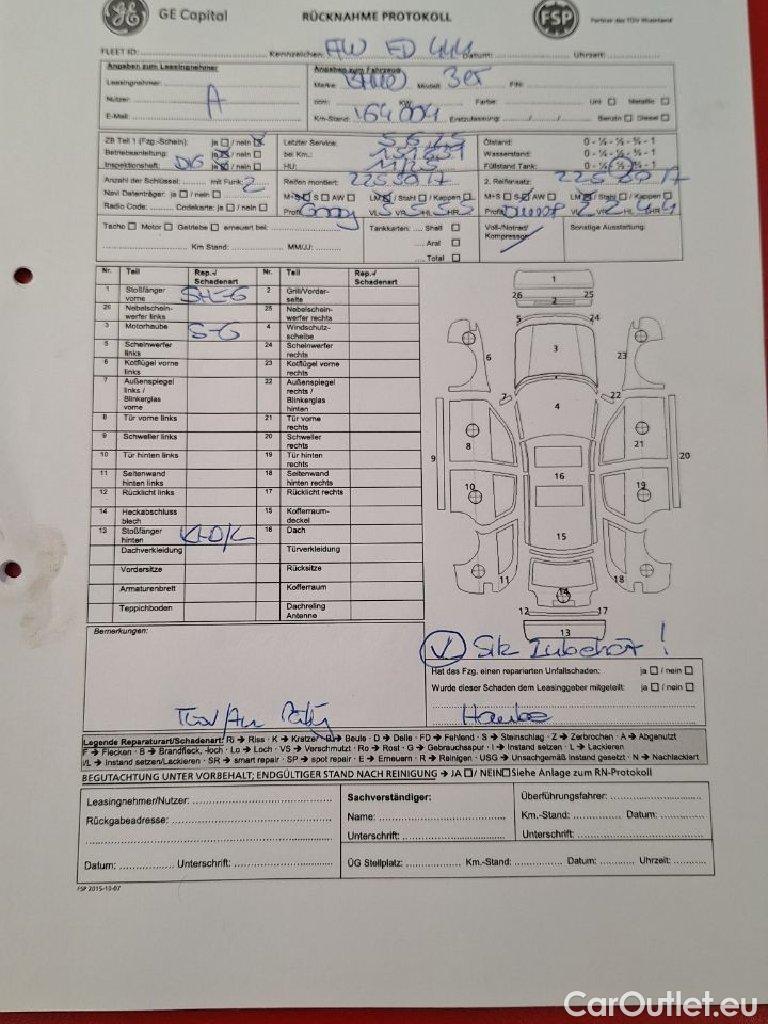 GE Capital RÜCKNAHME PROTOKOLL FSP Partner des TÜV Rheinland
FLEET ID: Kennzeichen: AW ED 444 Datum: Uhrzeit:
Angaben zum Leasingnehmer Angaben zum Fahrzeug
Leasingnehmer: Marke: BMW Modell: 3er FIN:
Nutzer: A Farbe: Uni ☐ Metallic ☐
E-Mail: Km-Stand: 164004 Erstzulassung: Benzin ☐ Diesel ☐
ZB Teil 1 (Fzg.-Schein): ja ☐ / nein ☒ Letzter Service: Ölstand: 0 - ¼ - ½ - ¾ - 1
Betriebsanleitung: ja ☒ / nein ☐ bei Km.: Wasserstand: 0 - ¼ - ½ - ¾ - 1
Inspektionsheft: ja ☒ / nein ☐ HU: Füllstand Tank: 0 - ¼ - ½ - ¾ - 1
Anzahl der Schlüssel: mit Funk: 2 Reifen montiert: 225 50 17 2. Reifensatz: 225 50 17
Navi Datenträger: ja ☐ / nein ☐ M+S ☐ S ☐ AW ☐ LM ☒ / Stahl ☐ / Kappen ☐ M+S ☐ S ☒ AW ☐ LM ☒ / Stahl ☐ / Kappen ☐
Radio Code: Codekarte: ja ☐ / nein ☐ Profil: Goody VL 5 VR 5 HL 5 HR 5 Profil: Dunlop
Tacho ☐ Motor ☐ Getriebe ☐ erneuert bei: Tankkarten: Shell ☐ Voll-/Notrad/ Sonstige Ausstattung:
Aral ☐ Kompressor
Km Stand: MM/JJ: Total ☐
Nr. Teil Rep.-/ Schadenart Nr. Teil Rep.-/ Schadenart
1 Stoßfänger vorne 2 Grill/Vorderseite
26 Nebelscheinwerfer links 25 Nebelscheinwerfer rechts
3 Motorhaube S-G 4 Windschutzscheibe
5 Scheinwerfer links 24 Scheinwerfer rechts
6 Kotflügel vorne links 23 Kotflügel vorne rechts
7 Außenspiegel links / Blinkerglas vorne 22 Außenspiegel rechts / Blinkerglas hinten
8 Tür vorne links 21 Tür vorne rechts
9 Schweller links 20 Schweller rechts
10 Tür hinten links 19 Tür hinten rechts
11 Seitenwand hinten links 18 Seitenwand hinten rechts
12 Rücklicht links 17 Rücklicht rechts
14 Heckabschluss blech 15 Kofferraumdeckel
13 Stoßfänger hinten 16 Dach
Dachverkleidung Türverkleidung
Vordersitze Rücksitze
Armaturenbrett Kofferraum
Teppichboden Dachreling Antenne
1
26 25
2
5 24
6 3 23
7 22
4
8 21
9 20
16
10 19
15
11 18
14
12 17
13
Bemerkungen: Stk Zubehör !
Hat das Fzg. einen reparierten Unfallschaden: ja ☐ / nein ☐
Wurde dieser Schaden dem Leasinggeber mitgeteilt: ja ☐ / nein ☐
Haube
Legende Reparaturart/Schadenart: Ri → Riss · K → Kratzer · B → Beule · D → Delle · FD → Fehlend · S → Steinschlag · Z → Zerbrochen · A → Abgenutzt
F → Flecken · B → Brandfleck, -loch · Lo → Loch · VS → Verschmutzt · Ro → Rost · G → Gebrauchsspur · I → Instand setzen · L → Lackieren
I/L → Instand setzen/Lackieren · SR → smart repair · SP → spot repair · E → Erneuern · R → Reinigen · USG → Unsachgemäß instand gesetzt · N → Nachlackiert
BEGUTACHTUNG UNTER VORBEHALT; ENDGÜLTIGER STAND NACH REINIGUNG → JA ☐ / NEIN ☐ Siehe Anlage zum RN-Protokoll
Leasingnehmer/Nutzer: Sachverständiger: Überführungsfahrer:
Rückgabeadresse: Name: Km.-Stand: Datum:
Unterschrift: Unterschrift:
Datum: Unterschrift: ÜG Stellplatz: Km.-Stand: Datum: Uhrzeit:
FSP 2015-10-07
CarOutlet.eu